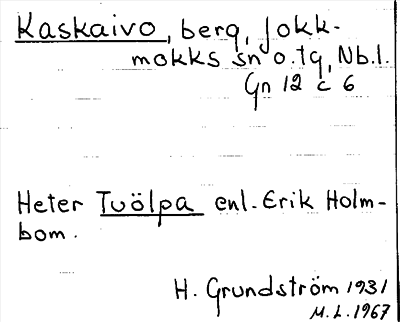 Kaskaivo, berg, Jokk-
mokks sn o. tg, Nb.l.
Gn 12 c 6
Heter Tuölpa enl. Erik Holm-
bom.
H. Grundström 1931
M.L. 1967